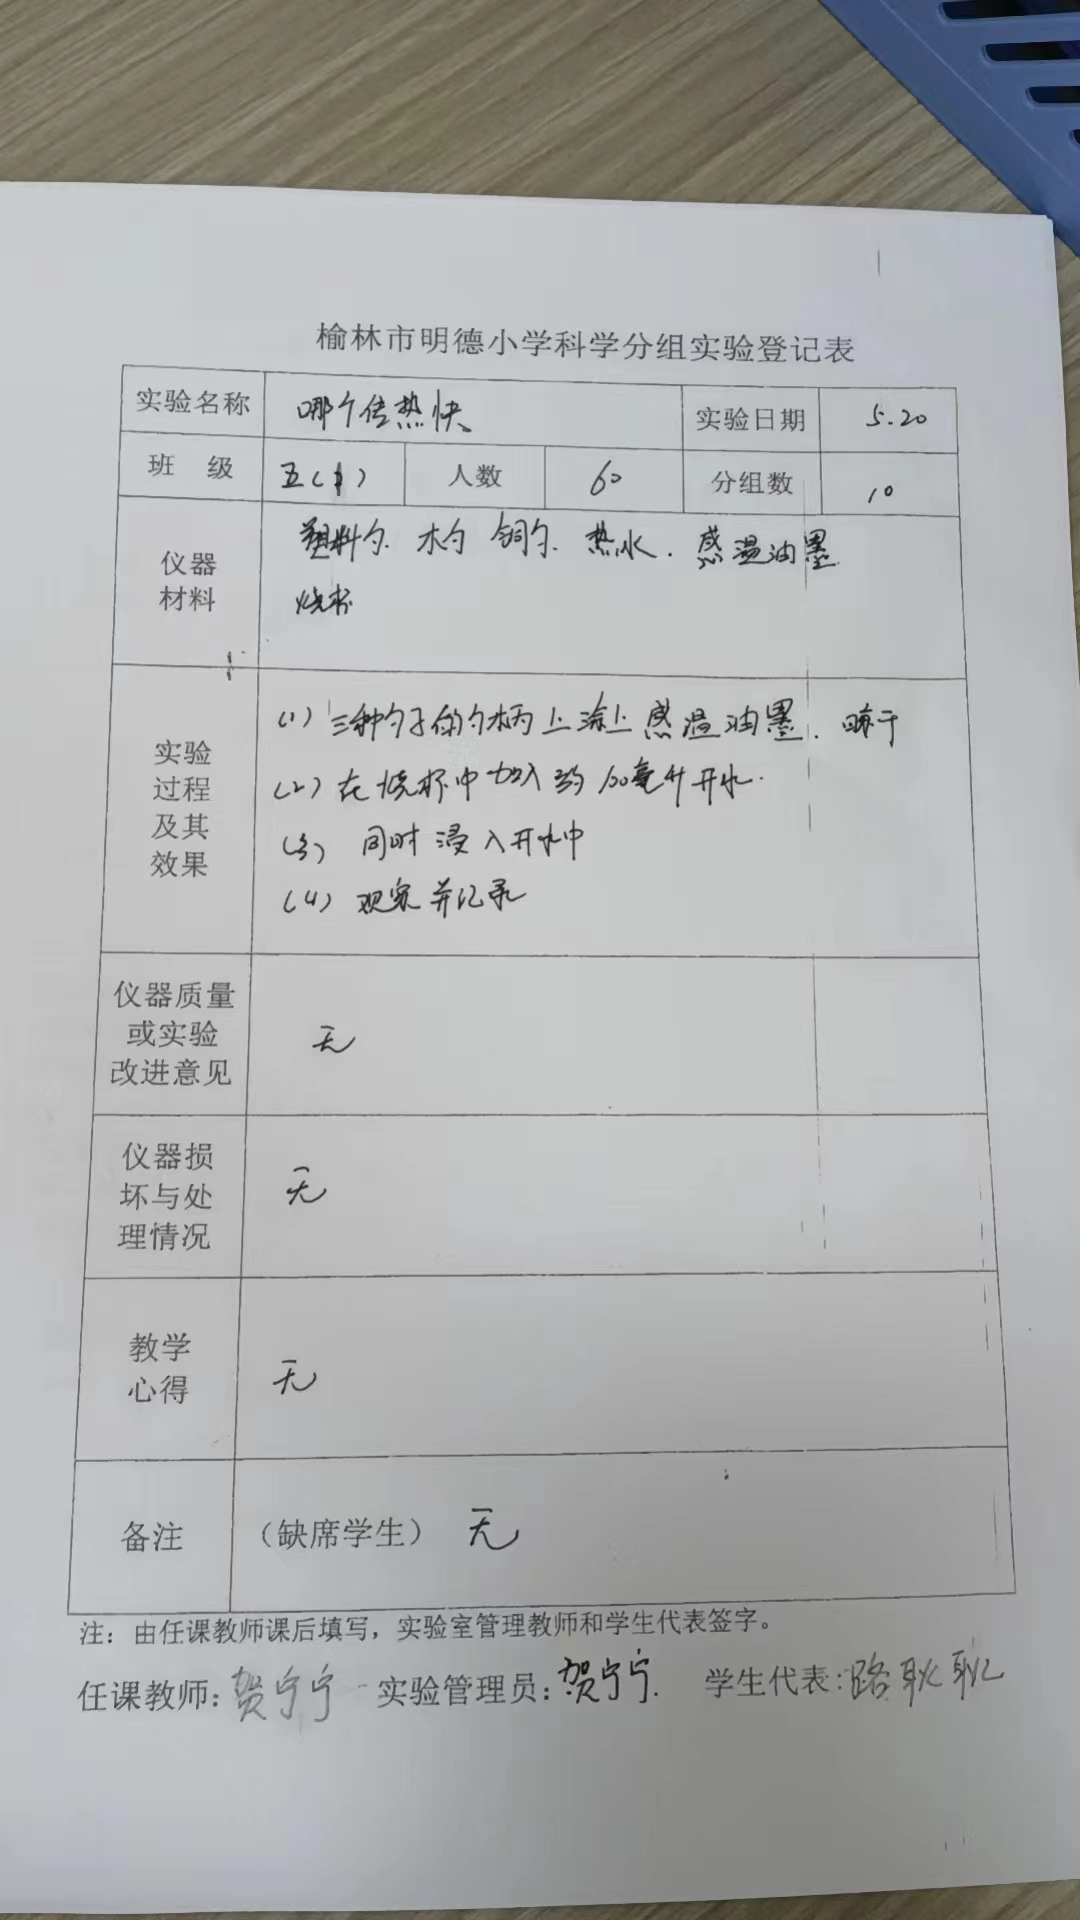 榆林市明德小学科学分组实验登记表
实验名称 哪个传热快 实验日期 5.20
班 级 五(1) 人数 60 分组数 10
仪器
材料
塑料勺. 木勺 铜勺. 热水. 感温油墨
烧杯
实验
过程
及其
效果
(1) 三种勺子的勺柄上涂上感温油墨. 晾干
(2) 在烧杯中加入约100毫升开水.
(3) 同时浸入开水中
(4) 观察并记录
仪器质量
或实验
改进意见
无
仪器损
坏与处
理情况
无
教学
心得
无
备注 (缺席学生) 无
注：由任课教师课后填写，实验室管理教师和学生代表签字。
任课教师: 贺宁宁 实验管理员: 贺宁宁. 学生代表: 路耿耿